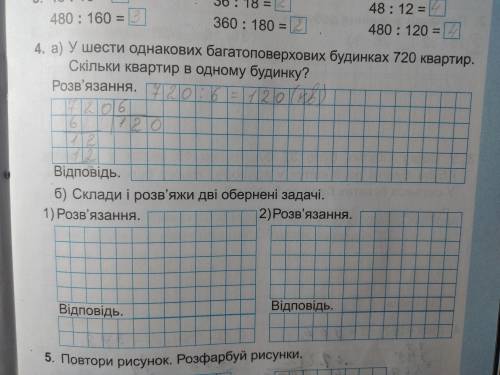 36 : 18 = 2
48 : 12 = 4
480 : 160 = 3
360 : 180 = 2
480 : 120 = 4
4. а) У шести однакових багатоповерхових будинках 720 квартир.
Скільки квартир в одному будинку?
Розв'язання. 720:6=120(кв)
720 6
6 120
12
12
Відповідь.
б) Склади і розв'яжи дві обернені задачі.
1) Розв'язання.
2) Розв'язання.
Відповідь.
Відповідь.
5. Повтори рисунок. Розфарбуй рисунки.